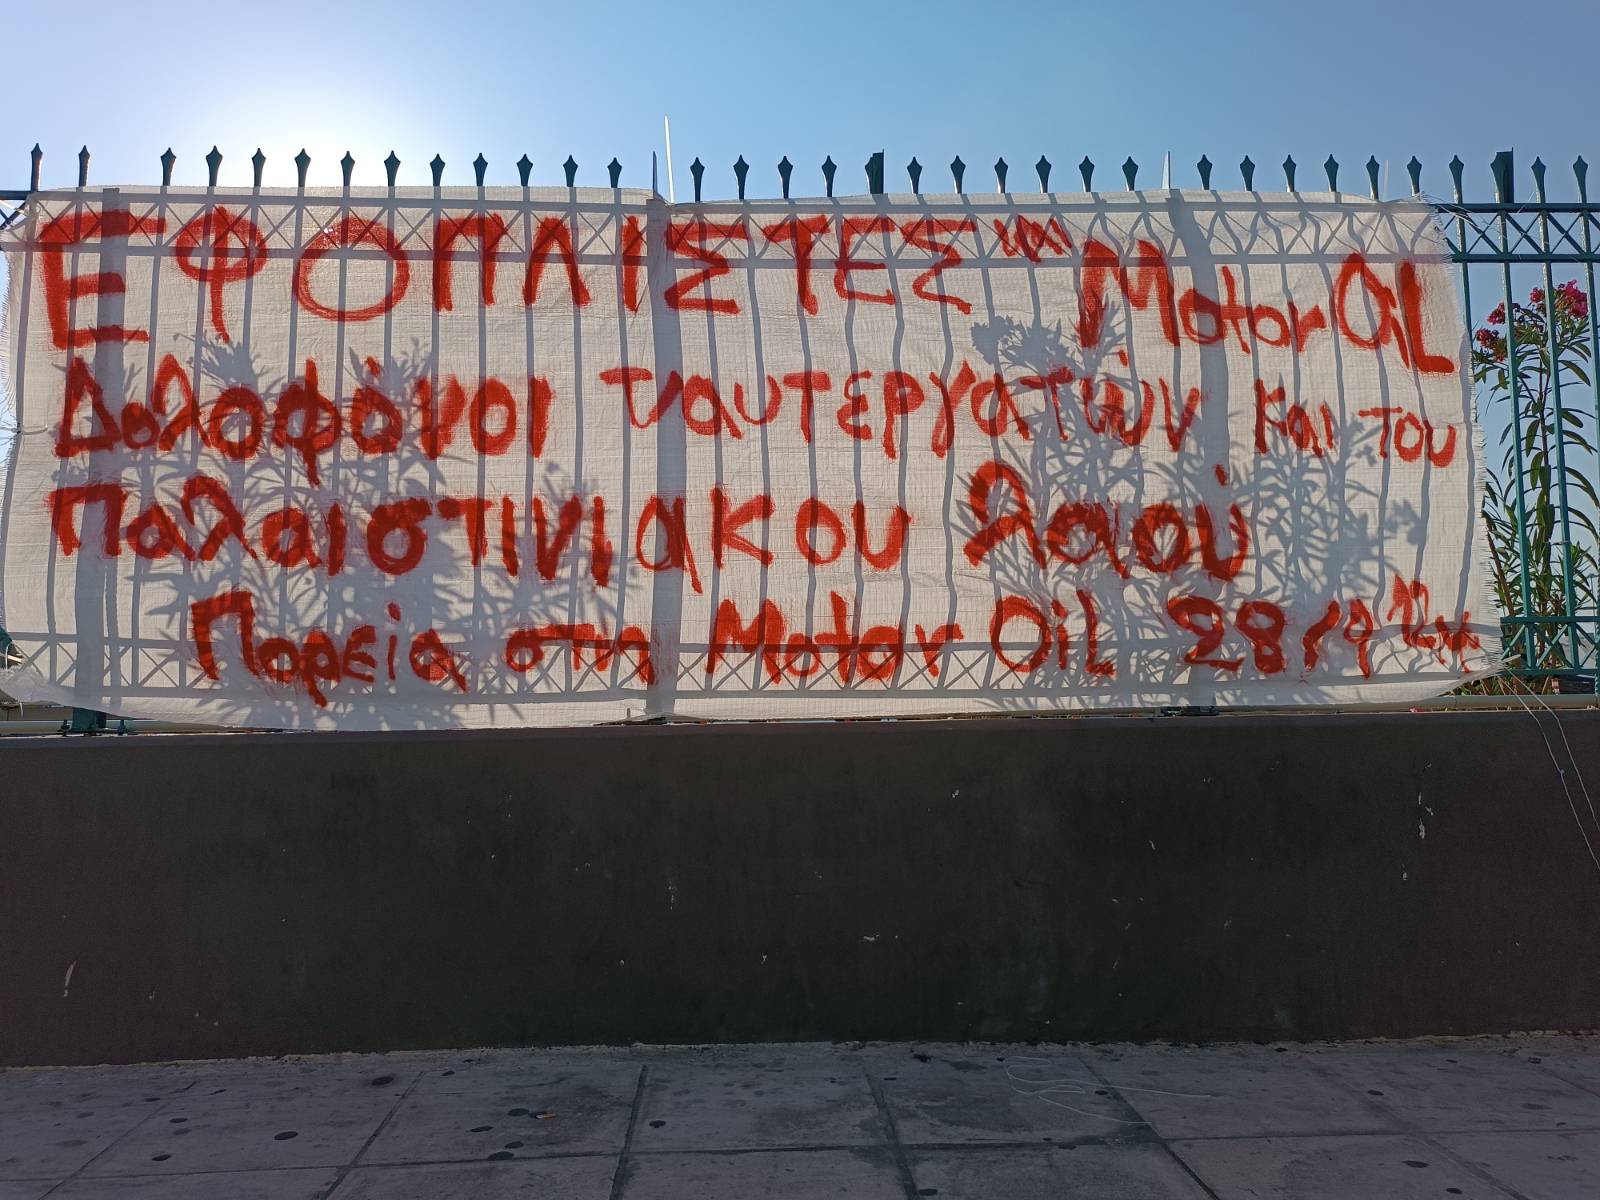 ΕΦΟΠΛΙΣΤΕΣ και Motor OiL
Δολοφόνοι ναυτεργατών και του
Παλαιστινιακου λαού
Πορεία στη Motor OiL 28/9 12πμ